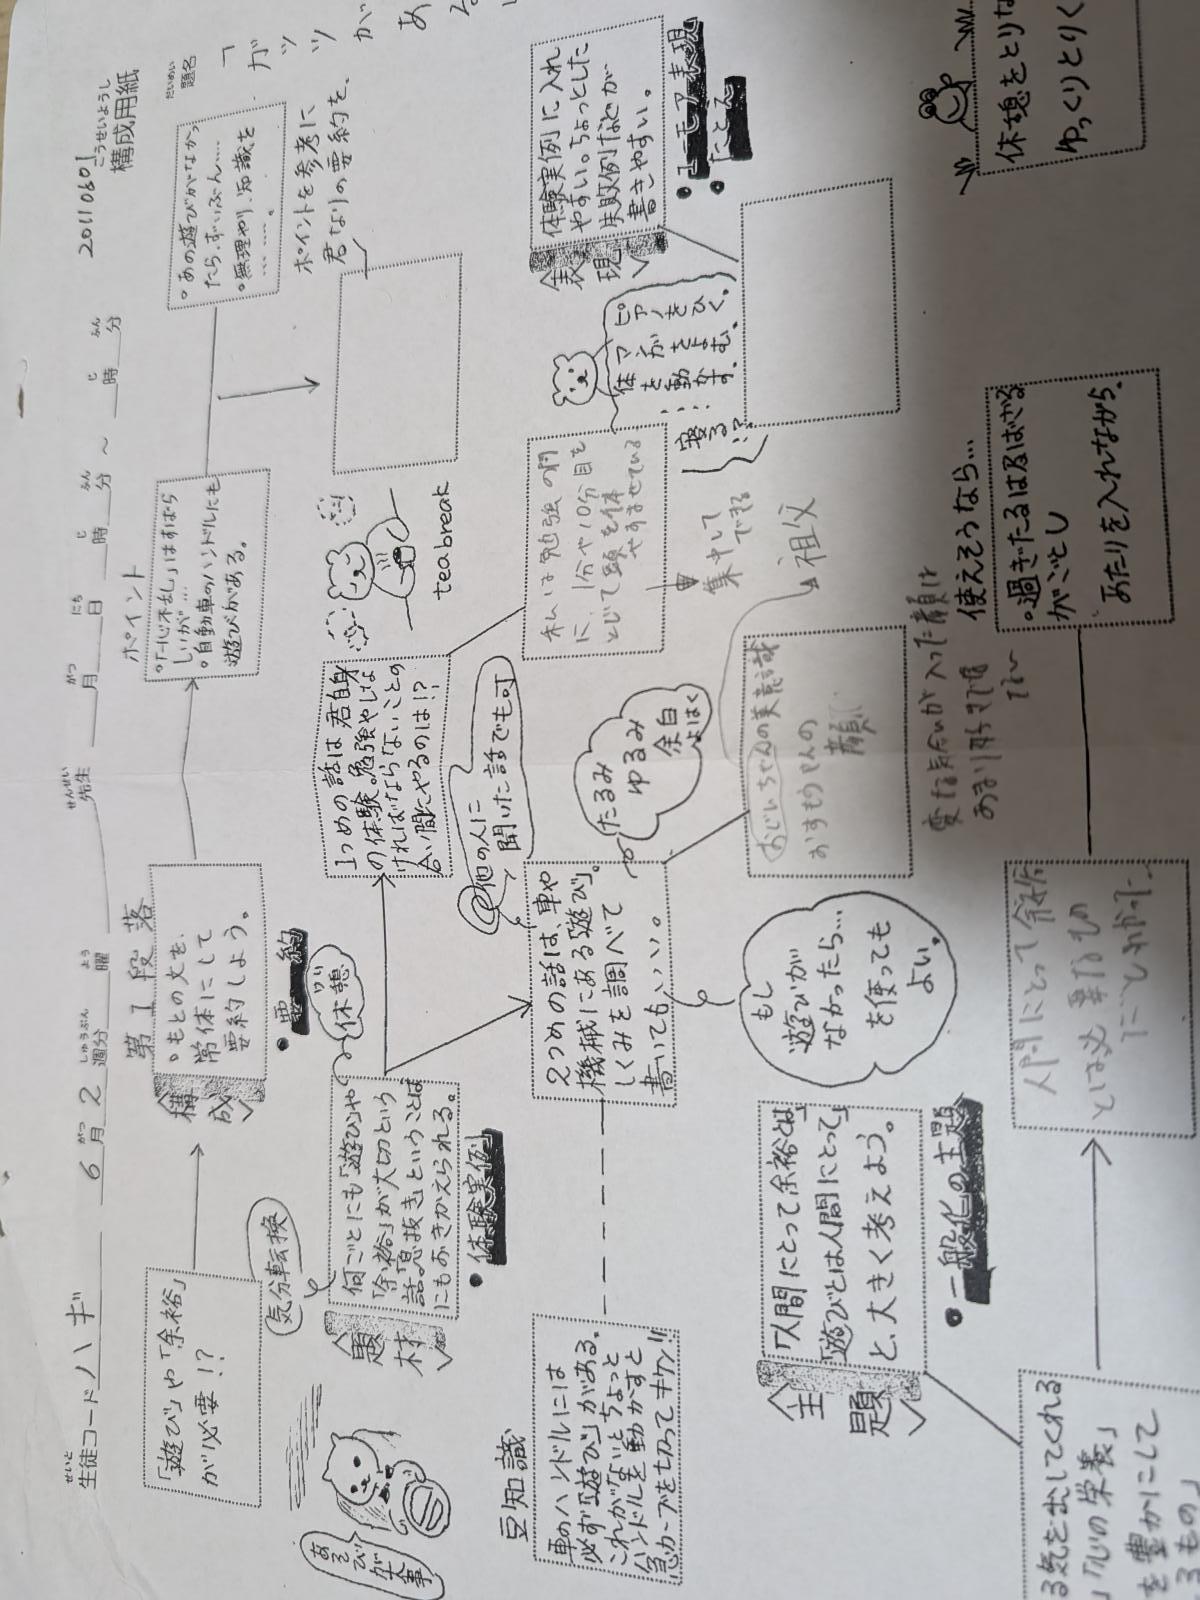 20110601
構成用紙
こうせいようし
生徒コード ハギ 6月2週分 曜 先生 月 日 時 分 ～ 時 分
せいと がつ しゅうぶん よう せんせい がつ にち じ ふん じ ふん
題名
だいめい
「ガッツ
が
あ
「遊び」や「余裕」
が必要!?
第1段落
構成
・もとの文を、
常体にして
要約しよう。
・要約
ポイント
・「一心不乱」はすばら
しいが…
・自動車のハンドルにも
遊びがある。
・あの遊びがなかっ
たら、ずいぶん……
・無理やり、知識を
………。
ポイントを参考に
君なりの要約を、
あそびが大事
気分転換
題材
何ごとにも「遊び」や
「余裕」が大切という
話。「息抜き」ということば
にもおきかえられる。
・体験実例
休憩
1つめの話は君自身
の体験。勉強やしな
ければならないことの
合い間にやるのは!?
他の人に
聞いた話でも可
teabreak
私は勉強の間
に、1分や10分目を
とじて頭を休
やすませている
集中して
できる
ピアノをひく。
マンガをよむ。
体を動かす。
寝る!?
表現
体験実例に入れ
やすい。ちょっとした
失敗例などが
書きやすい。
・ユーモア表現
・「たとえ
豆知識
車のハンドルには
必ず「遊び」がある。
これがないとちょっと
ハンドルを動かすと
急カーブを切ってキケン!!
2つめの話は、車や
機械にある「遊び」。
しくみを調べて
書いてもいい。
たるみ
ゆるみ
余白
よはく
もし
遊びが
なかったら…
を使っても
よい。
おじいちゃんの美意識
おすもうさんの
顔
祖父
変な気合いが入った顔は
あまり
主題
「人間にとって余裕とは」
「遊びとは人間にとって」
と、大きく考えよう。
・一般化の主題
る気を出してくれる
」「心の栄養」
を豊かにして
るもの」
人間にとって余裕
とは必要なもの
だとわかった。
使えそうなら…
・過ぎたるはなおおよばざる
がごとし
あたりを入れながら、
休憩をとりな
ゆっくりとりく